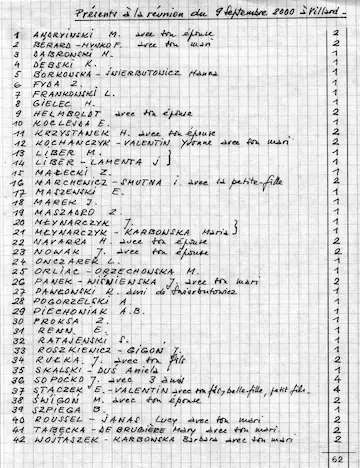 Présents à la réunion du 9 Septembre 2000 à Villard
1 ANDRYIŃSKI M. avec son épouse 2
2 BERARD - avec son mari 2
3 DABROWSKI H. 1
4 DEBSKI K. 1
5 BORKOWSKA - ŚNIERBUTOWICZ Hanna 1
6 FYDA Z. 1
7 FRANKOWSKI L. 1
8 GIELEC H. 1
9 HELMBOLDT avec son épouse 2
10 KOCLEJDA E. 1
11 KRZYSTANEK H. avec son épouse 2
12 KOCHAŃCZYK - VALENTIN Yvonne avec son mari 2
13 LIBER M. 1
14 LIBER - LAMENTA J 1
15 MAŁECKI Z. 1
16 MARCHENICZ - SMUTNA i. avec sa petite-fille 2
17 MASZENSKI E. 1
18 MAREK J. 1
19 MASZADRO Z 1
20 MŁYNARCZYK J. 1
21 MŁYNARCZYK - KARBOWSKA Maria 1
22 NAVARRA H. avec son épouse 2
23 NOWAK J. avec son épouse 2
24 ONCZAREK L. 1
25 ORLIAC - ORZECHOWSKA M. 1
26 PANEK - WIŚNIEWSKA J. avec son mari 2
27 PAWŁOWSKI K. ami de Śnierbutowicz 1
28 POGORZELSKI A 1
29 PIECHONIAK A.B. 1
30 PROKSA Z. 1
31 RENN. E. 1
32 RATAJEWSKI S. 1
33 ROSZKIEWICZ - GIGON J. 1
34 RUŁKA J. avec son fils 2
35 SKALSKI - DUŚ Aniela 1
36 SOPOĆKO J. avec 3 amis 4
37 STACZEK E. - VALENTIN avec son fils, belle-fille, petit fils 4
38 ŚWIGON M. avec son épouse 2
39 SZPIEGA B. 1
40 ROUSSEL - JANAS Lucy avec son mari 2
41 TAIBECKA - DE BRUBIÈRE Mary avec son mari. 2
42 WOJTASZEK - KARBOWSKA Barbara avec son mari. 2
62